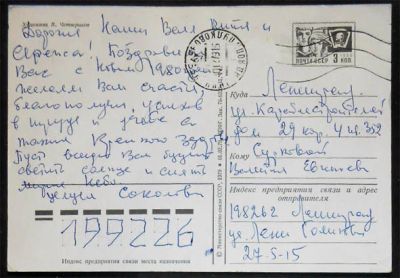 Художник В. Четвериков
Дорогие Наши Валя, Витя и
Сережа! Поздравл
Вас с Новым 1980 годом
желаем Вам счастья,
благополучия, успехов
в труде и учебе а
также Крепкого Здоровья
Пусть всегда Вам будет
светить солнце и сиять
мирное Небо
Целуем Соколовы
ПОЧТА СССР
3 КОП
Куда Ленинград
ул. Кораблестроителей
дом 29 кор. 4 кв. 352
Кому
Валентине Евгеньевне
Индекс предприятия связи и адрес
отправителя
198262 Ленинград
ул. Лени Голикова
27-5-15
© Министерство связи СССР. 1979
199226
Индекс предприятия связи места назначения